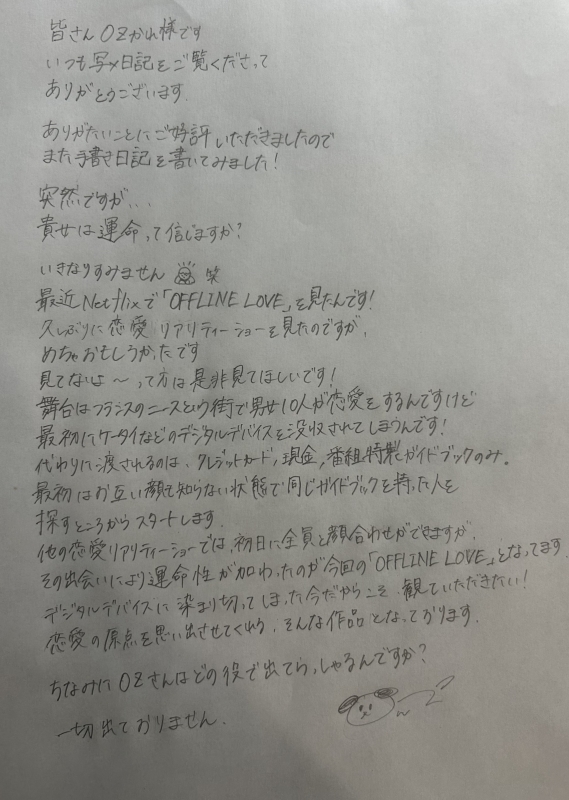 皆さんOZかれ様です
いつも写メ日記をご覧くださって
ありがとうございます.
ありがたいことにご好評いただきましたので
また手書き日記を書いてみました!
突然ですが...
貴女は運命って信じますか?
いきなりすみません 笑
最近Netflixで「OFFLINE LOVE」を見たんです!
久しぶりに恋愛リアリティーショーを見たのですが,
めちゃおもしろかったです
見てないよ〜って方は是非見てほしいです!
舞台はフランスのニースという街で男女10人が恋愛をするんですけど
最初にケータイなどのデジタルデバイスを没収されてしまうんです!
代わりに渡されるのは、クレジットカード,現金,番組特製ガイドブックのみ。
最初はお互い顔も知らない状態で同じガイドブックを持った人を
探すところからスタートします.
他の恋愛リアリティーショーでは,初日に全員と顔合わせができますが,
その出会いにより運命性が加わったのが今回の「OFFLINE LOVE」となってます.
デジタルデバイスに染まり切ってしまった今だからこそ,観ていただきたい!
恋愛の原点を思い出させてくれる,そんな作品となっております.
ちなみにOZさんはどの役で出てらっしゃるんですか?
一切出ておりません.